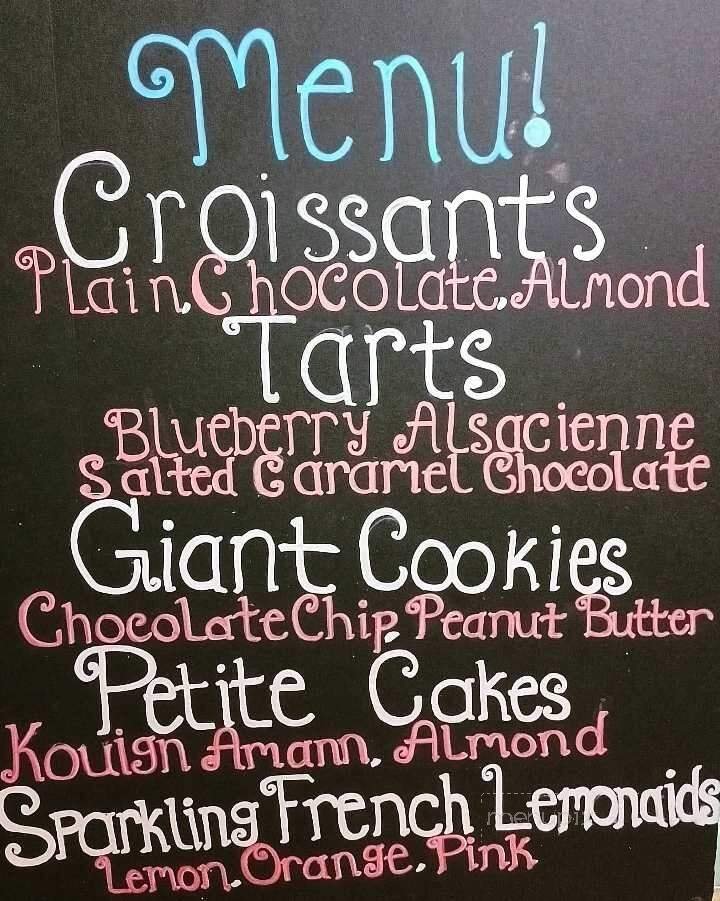 Menu!
Croissants
Plain, Chocolate, Almond
Tarts
Blueberry Alsacienne
Salted Caramel Chocolate
Giant Cookies
Chocolate Chip, Peanut Butter
Petite Cakes
Kouign Amann, Almond
Sparkling French Lemonaids
Lemon, Orange, Pink